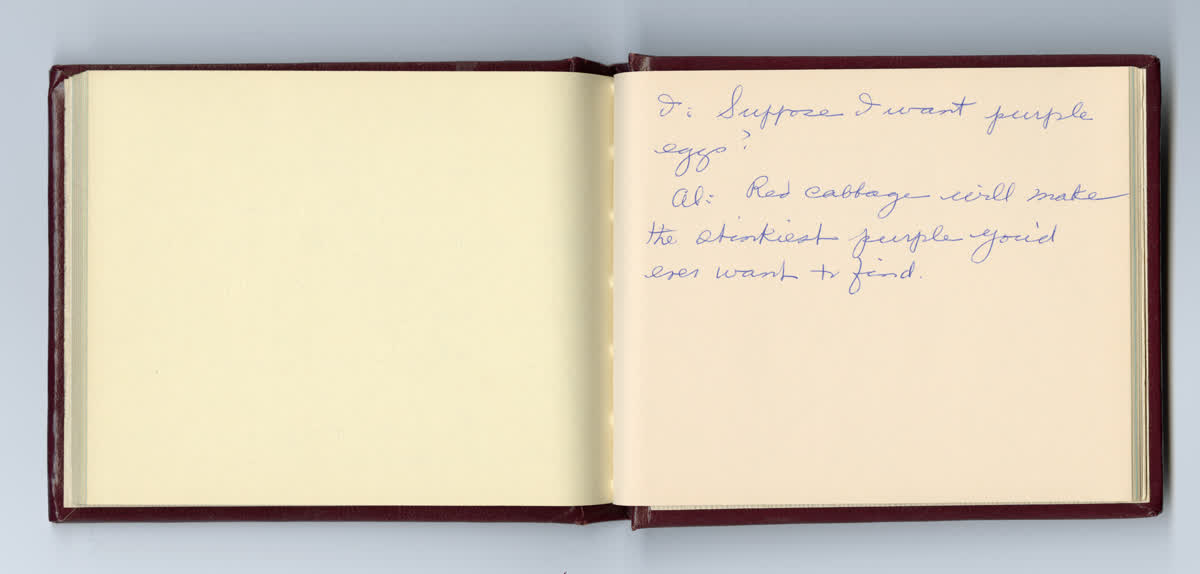 I: Suppose I want purple
eggs?
Al: Red cabbage will make
the stinkiest purple you'd
ever want to find.